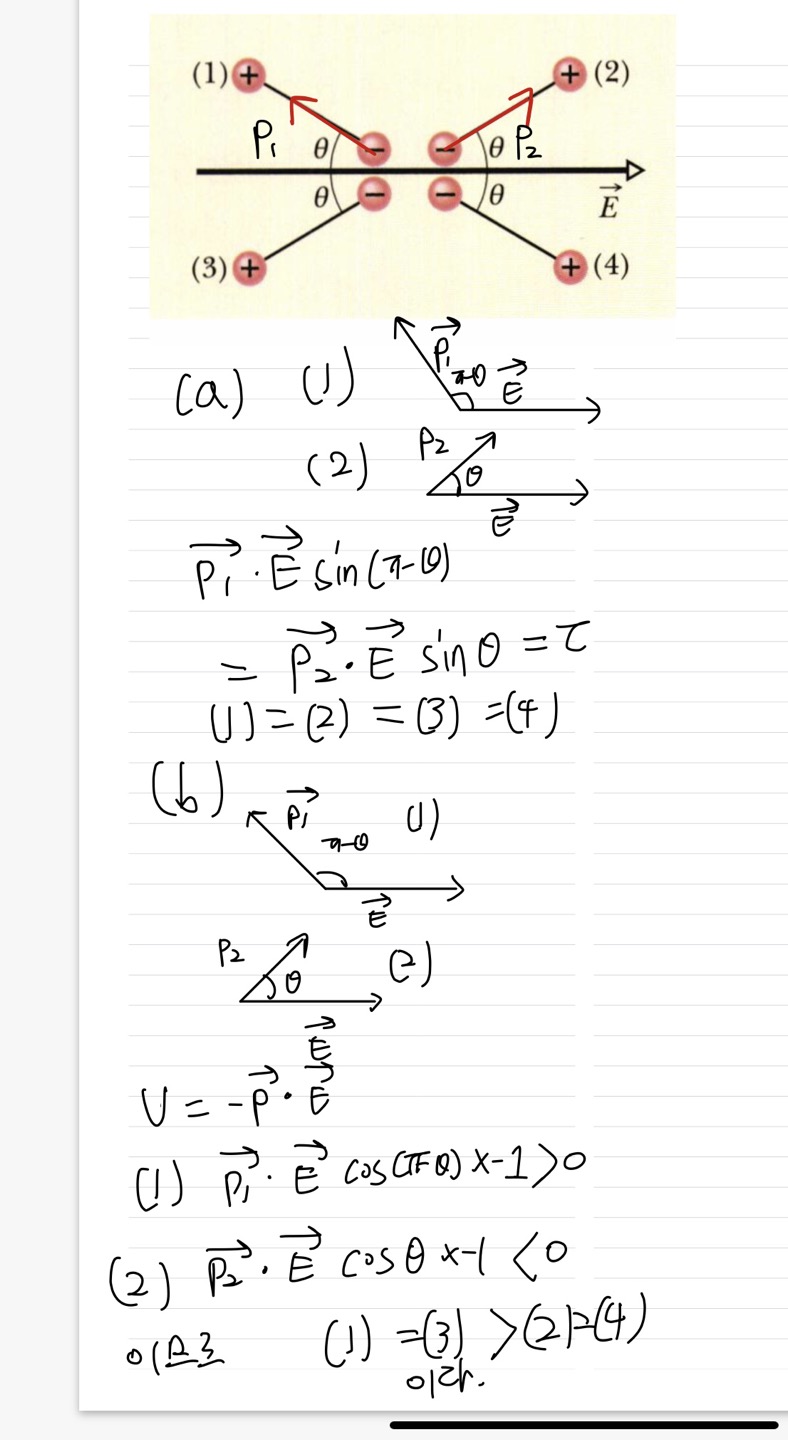 (1) + + (2)
P₁ θ − − θ P₂
θ − − θ E⃗
(3) + + (4)
(a) (1) P⃗₁ π-θ E⃗
(2) P₂ θ E⃗
P⃗₁ · E⃗ sin(π-θ)
= P⃗₂ · E⃗ sin θ = τ
(1) = (2) = (3) = (4)
(b) P⃗₁ π-θ (1)
E⃗
P₂ θ (2)
E⃗
U = -P⃗ · E⃗
(1) P⃗₁ · E⃗ cos(π-θ) x-1 > 0
(2) P⃗₂ · E⃗ cos θ x-1 < 0
(1) = (3) > (2) = (4)
이다.